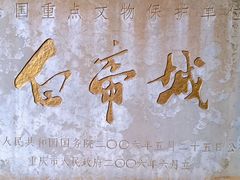 国重点文物保护单位
白帝城
人民共和国国务院二〇〇六年五月二十五日公
重庆市人民政府二〇〇六年六月立